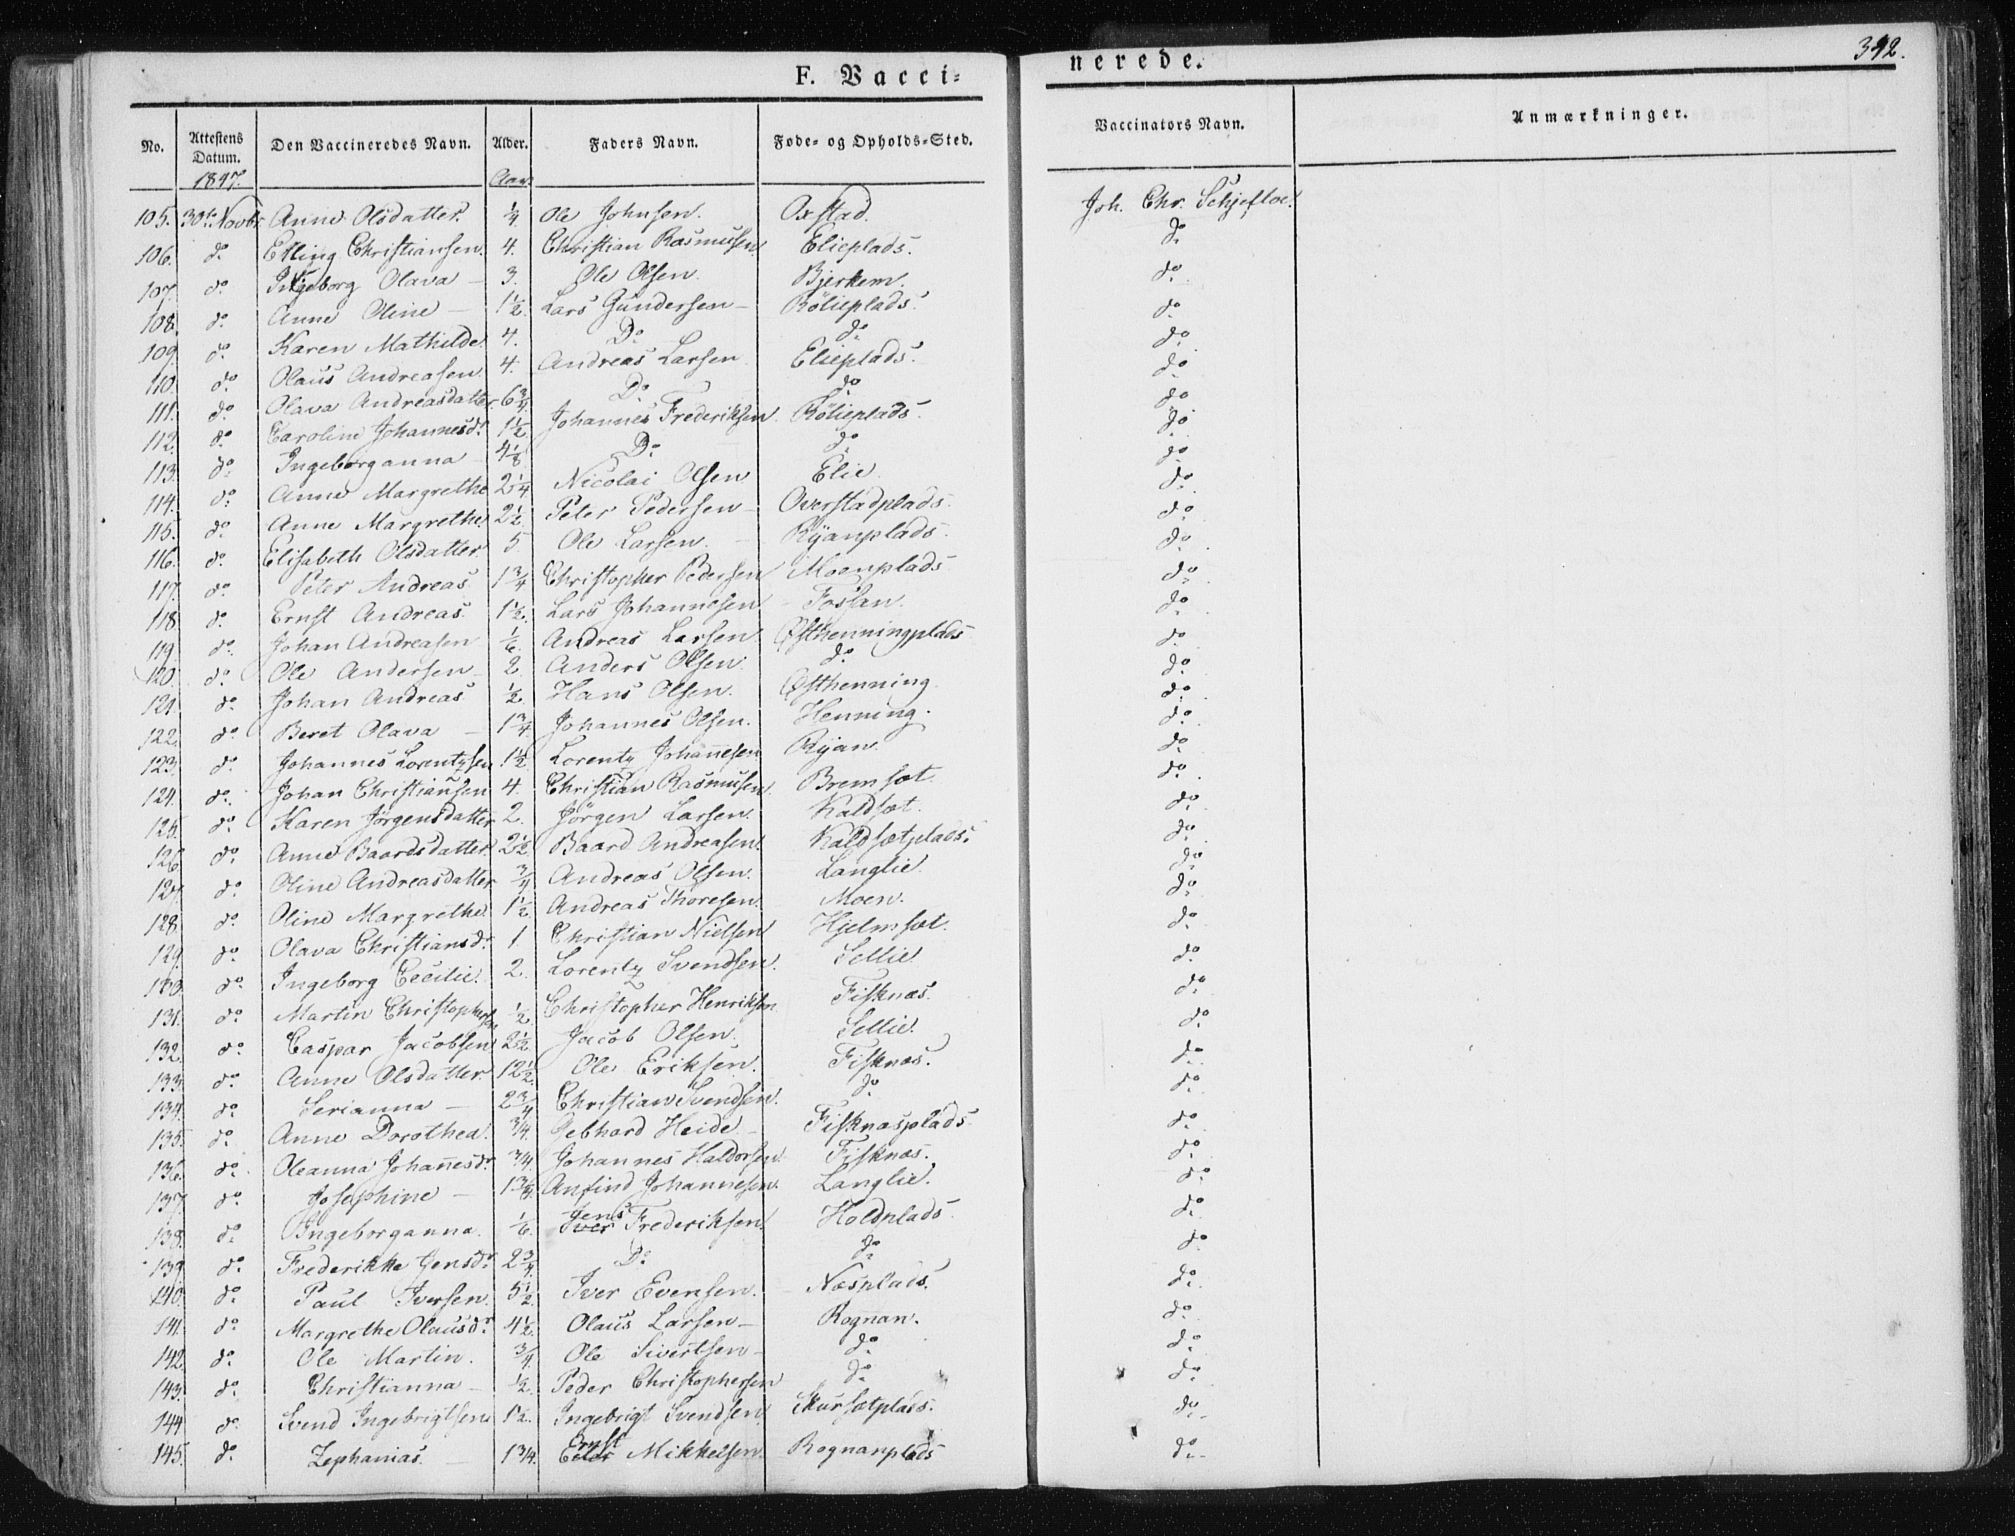 F. Vacci=
nerede.
392.
No. Attestens Datum. Den Vaccineredes Navn. Alder. Faders Navn. Føde- og Opholds-Sted. Vaccinators Navn. Anmærkninger.
1847. Aar.
105. 30te Novbr Anne Olsdatter. 1/4 Ole Johnsen. Oxstad. Joh. Chr. Schjefloe.
106. do Elling Christiansen. 4. Christian Rasmussen. Elieplads. do
107. do Ingeborg Olava — 3. Ole Olsen. Bjerkem. do
108. do Anne Oline — 1 1/2. Lars Gundersen — Rölieplads. do
109. do Karen Mathilde. 4. Do do do
110. do Olaus Andreasen 4. Andreas Larsen Elieplads. do
111. do Olava Andreasdatter. 6 3/4 Do do do
112. do Caroline Johannesdr. 1 1/2 Johannes Frederiksen. Rölieplads. do
113. do Ingeborganna 4 1/8 Do do do
114. do Anne Margrethe 2 1/4 Nicolai Olsen Elie do
115. do Anne Margrethe 2 1/2 Peter Pedersen — Overstadplads. do
116. do Elisabeth Olsdatter 5. Ole Larsen. — Ryanplads. do
117. do Peter Andreas. 1 3/4 Christopher Pedersen Moenplads do
118. do Ernst Andreas. 1 1/2. Lars Johannesen Fossan. do
119. do Johan Andreasen 1/6. Andreas Larsen Østhenningplads do
120. do Ole Andersen — 2 Anders Olsen. do do
121. do Johan Andreas 1/2 Hans Olsen. Østhenning. do
122. do Beret Olava — 1 3/4 Johannes Olsen. Henning. do
123. do Johannes Lorentzsen 1 1/2 Lorentz Johannesen Ryan. do
124. do Johan Christiansen 4. Christian Rasmussen. Bremsæt. do
125. do Karen Jørgensdatter 2. Jörgen Larsen. Kaldsæt. do
126. do Anne Baardsdatter. 2 1/2. Baard Andreasen. Kaldsætplads. do
127. do Oline Andreasdatter 3/4 Andreas Olsen. Langlie. do
128. do Oline Margrethe 1 1/2 Andreas Thoresen. Moen. do
129. do Olava Christiansdr. 1. Christian Nielsen Hjelmsæt. do
130. do Ingeborg Cecilie. 2. Lorentz Svendsen. Sellie do
131. do Martin Christophersen 1/2 Christopher Henriksen Fisknæs. do
132. do Caspar Jacobsen 2 1/2 Jacob Olsen. Sellie. do
133. do Anne Olsdatter. 12 1/2. Ole Eriksen. Fisknæs. do
134. do Serianna — 2 3/4 Christian Svendsen. do do
135. do Anne Dorothea. 3/4. Gebhard Heide — Fisknæsplads. do
136. do Oleanna Johannesdr. 3/4 Johannes Haldorsen. Fisknæs. do
137. do Josephine — 1 3/4. Anfind Johannesen. Langlie. do
138. do Ingeborganna. 1/6. Jens Iver Frederiksen. Holdplads do
139. do Frederikke Jensdr. 2 3/4. Do do do
140. do Paul Iversen. 5 1/2. Iver Evensen. Næsplads. do
141. do Margrethe Olausdr. 4 1/2. Olaus Larsen — Rognan. do
142. do Ole Martin. 3/4. Ole Sivertsen — do do
143. do Christianna — 1/2. Peder Christophersen do do
144. do Svend Ingebrigtsen 1 1/2. Ingebrigt Svendsen. Skursætplads. do
145. do Zephanias. — 1 3/4. Ernst Mikkelsen. Rognanplads do